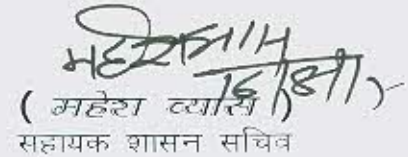 ( महेश व्यास )
सहायक शासन सचिव